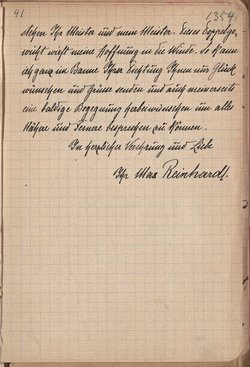 41
1354.
stehen Ihr Meister und mein Meister. Euser
wirft meine Hoffnung in die Winde. So kann
ich ganz im Banne Ihrer Dichtung Ihnen nur Glück
wünschen und Grüsse senden und auch meinerseits
eine baldige Begegnung herbeiwünschen um alles
Nähere und Fernere besprechen zu können.
In herzlicher Verehrung und Liebe
Ihr Max Reinhardt.